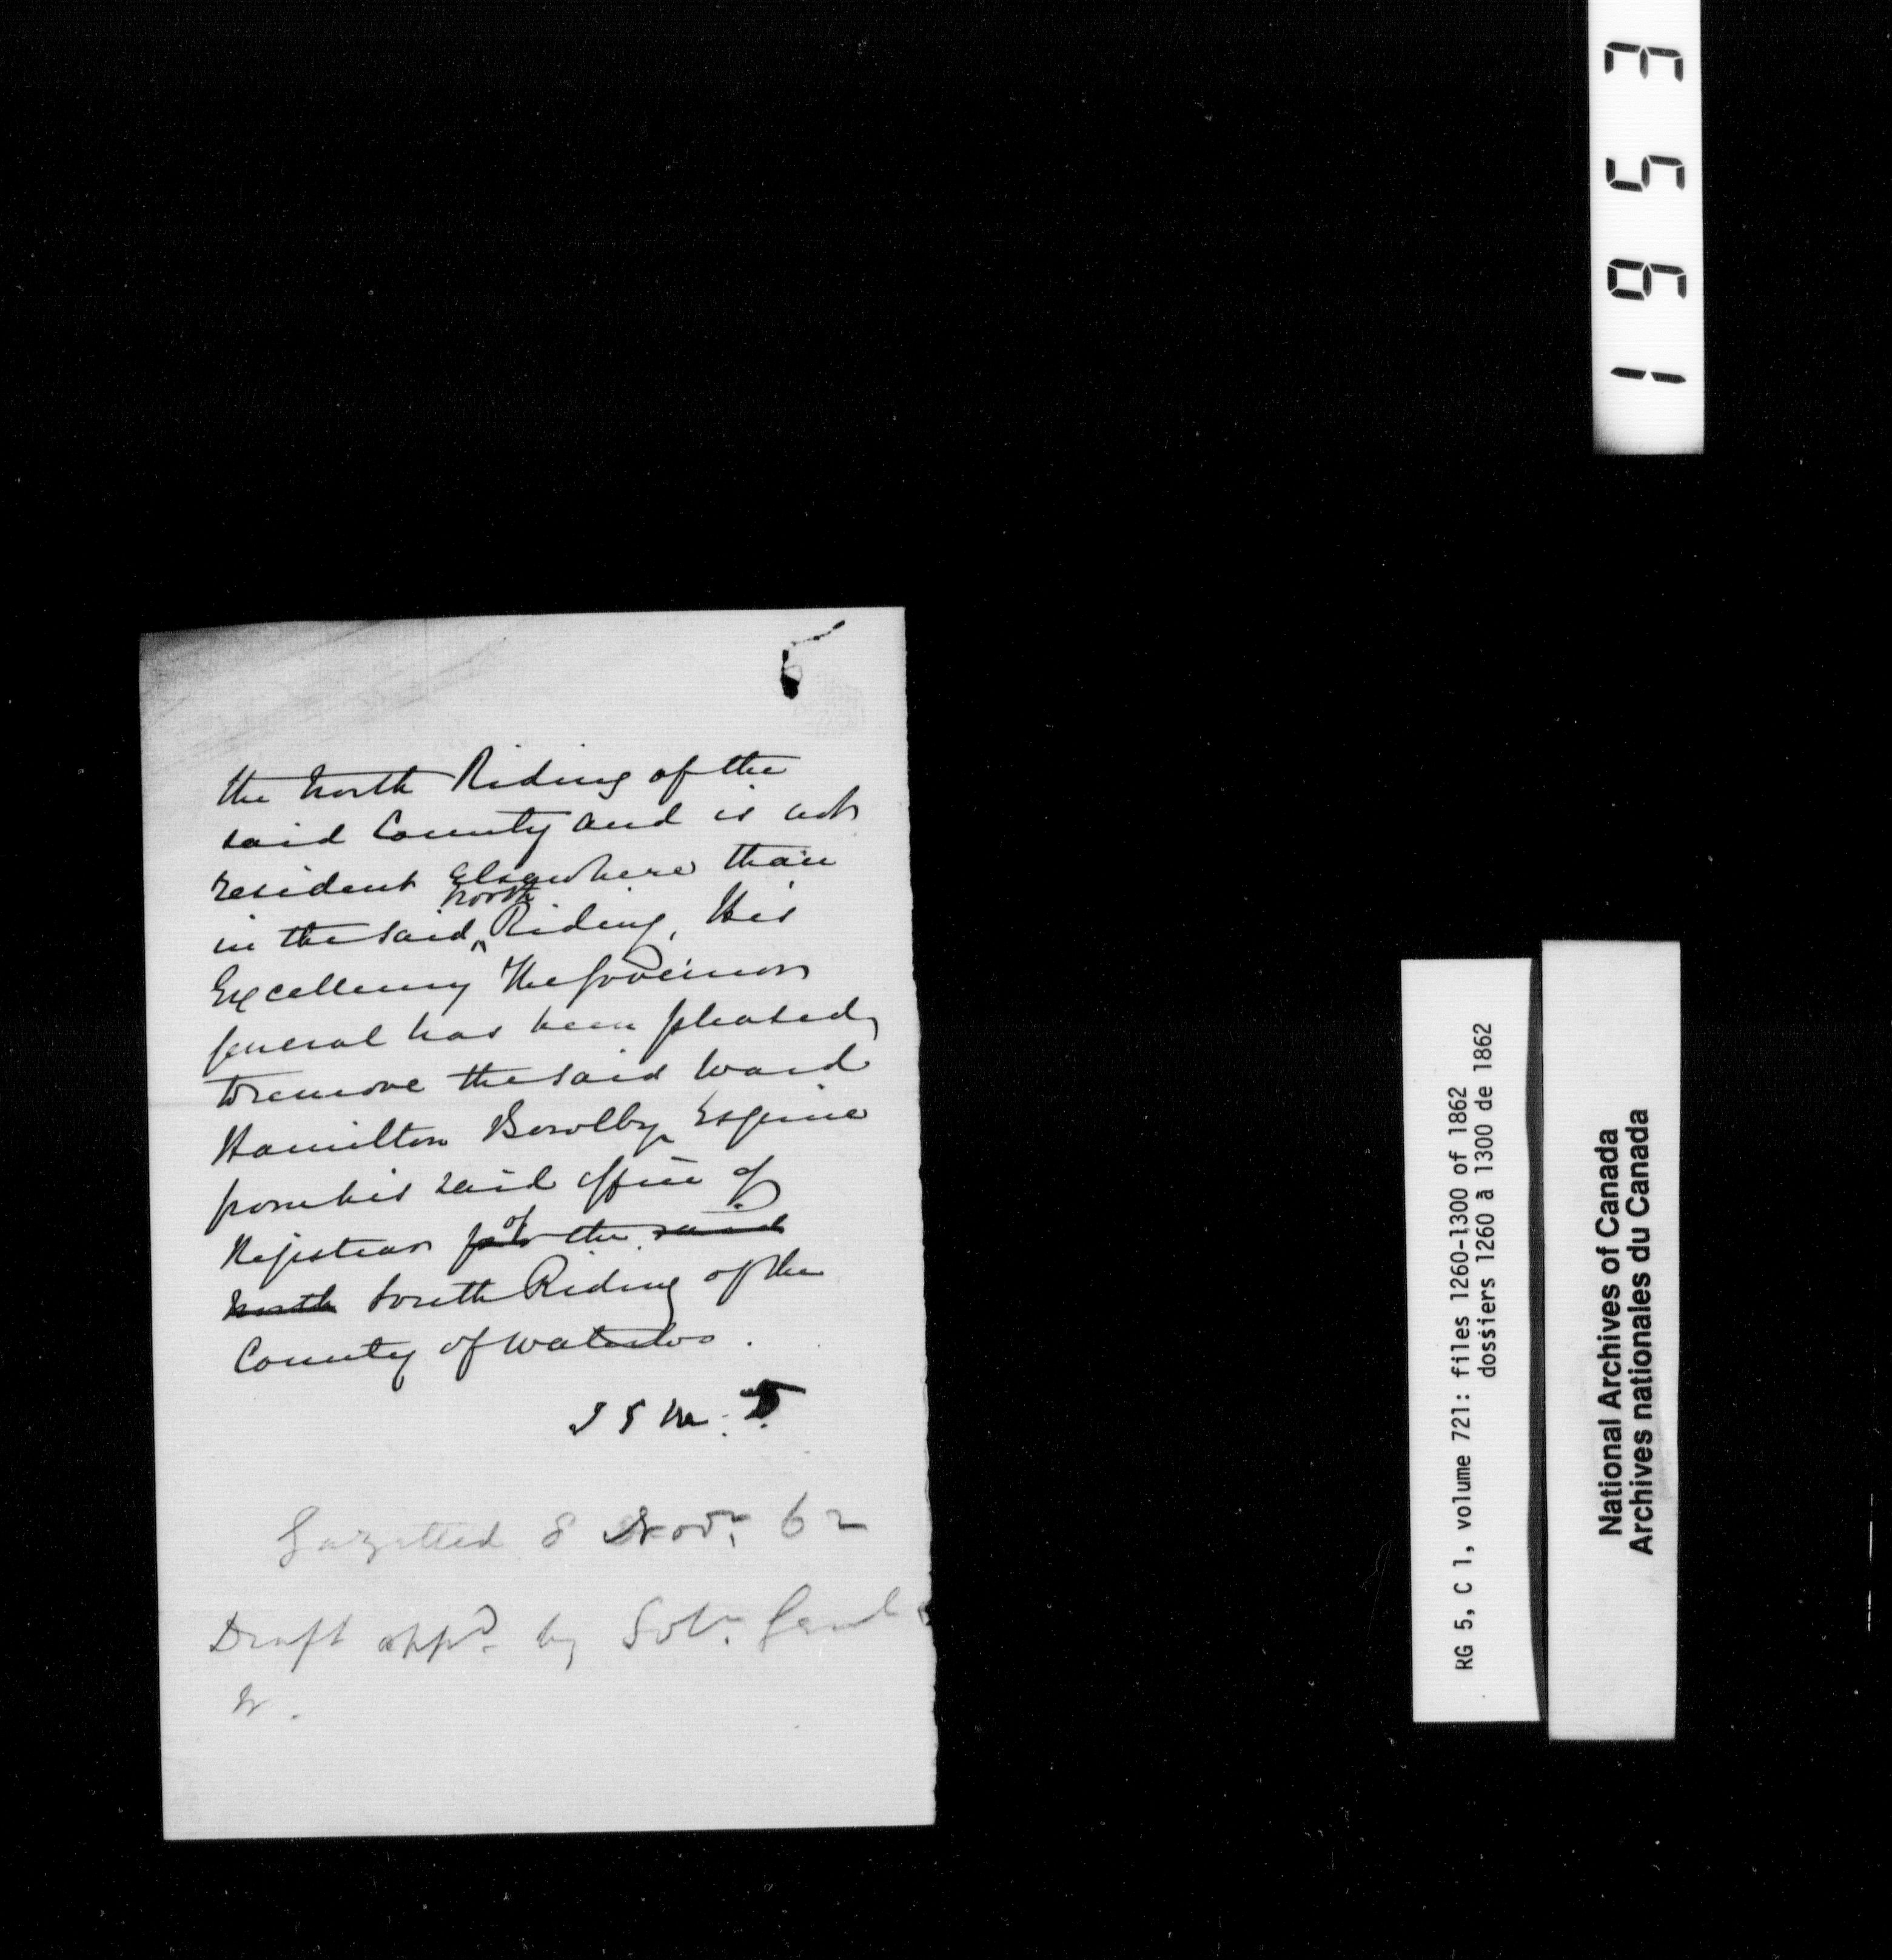 the North Riding of the
said County and is not
resident Elsewhere than
in the said ^ North Riding, His
Excellency The Governor
General has been pleased,
to remove the said Ward
Hamilton Bowlby Esquire
from his said office of
Registrar for of the said
North South Riding of the
County of Waterloo.
Gazetted 8 Novr. 62
Draft appd. by Solr. Genl
W.
1953
RG 5, C 1, volume 721: files 1260-1300 of 1862
dossiers 1260 à 1300 de 1862
National Archives of Canada
Archives nationales du Canada